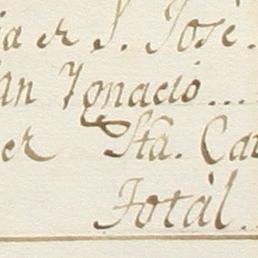 ia de S. José.
an Ignacio...
de Sta. Cat
Total..